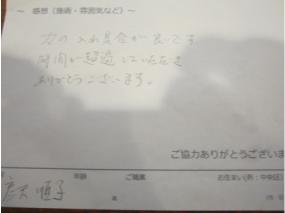 ~ 感想（施術・雰囲気など）~
力の入れ具合が良いです
時間が超過していただき
ありがとうございます。
ご協力ありがとうございま
年齢 ご職業 お住まい(例：中央区)
順子
歳